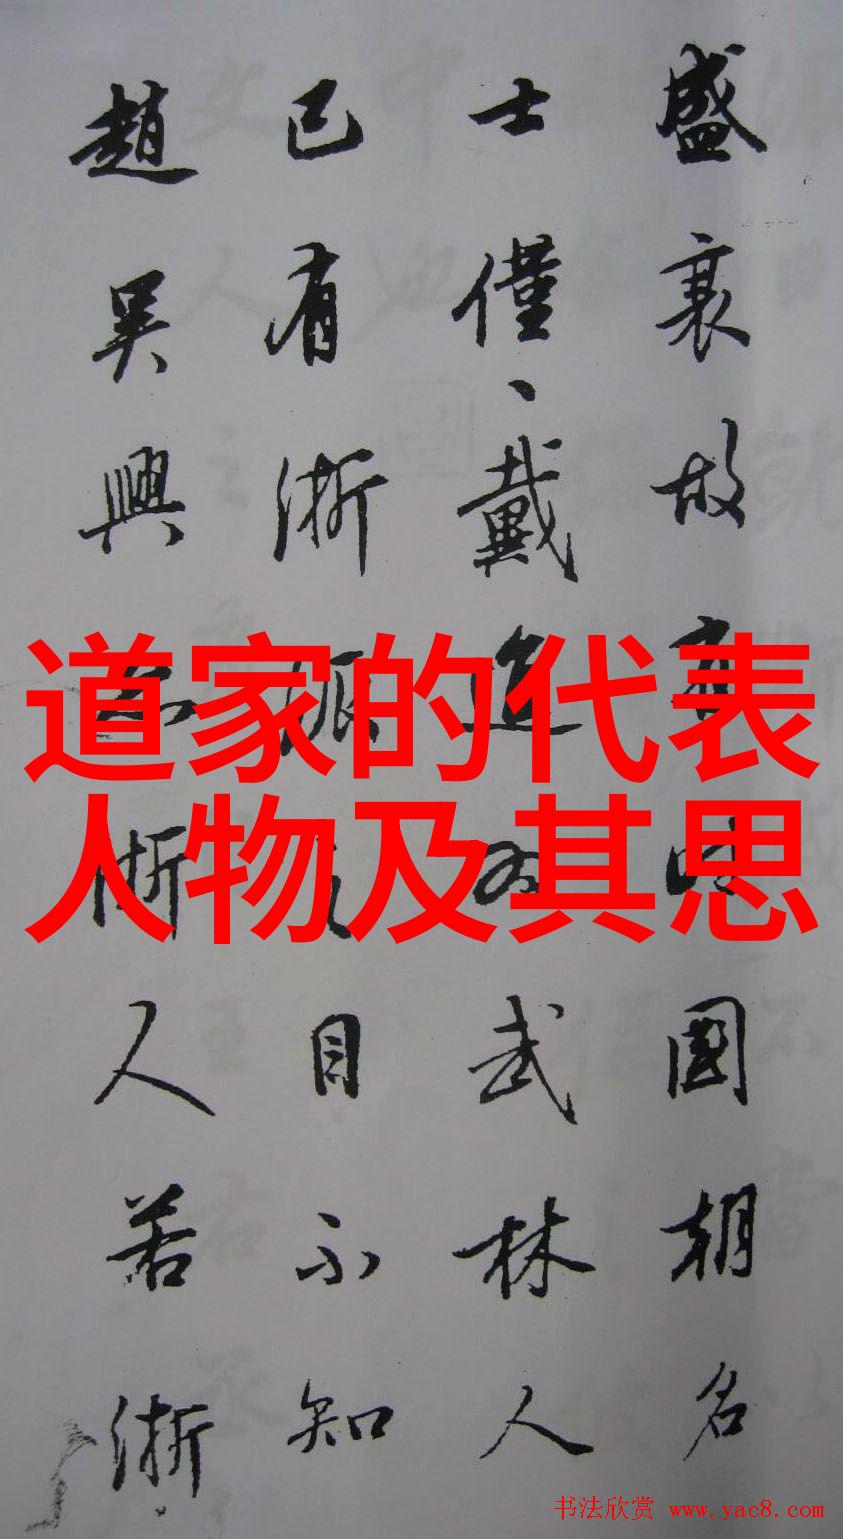 盛衰故有時國朝名
士僅、戴進為武林人
已有浙派之目不知
趙吳興亦浙人若浙
道家的代表
人物及其思
书法欣赏 www.yac8.com